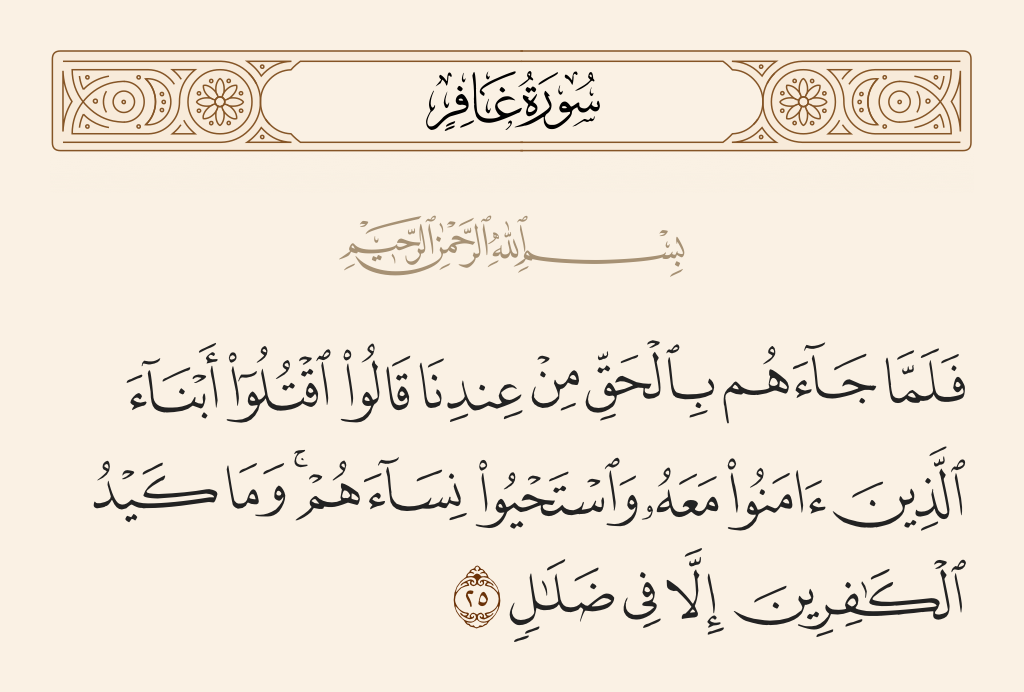 سُورَةُ غَافِرٍ
بِسْمِ ٱللَّهِ ٱلرَّحْمَٰنِ ٱلرَّحِيمِ
فَلَمَّا جَآءَهُم بِٱلْحَقِّ مِنْ عِندِنَا قَالُوا۟ ٱقْتُلُوٓا۟ أَبْنَآءَ
ٱلَّذِينَ ءَامَنُوا۟ مَعَهُۥ وَٱسْتَحْيُوا۟ نِسَآءَهُمْ ۚ وَمَا كَيْدُ
ٱلْكَٰفِرِينَ إِلَّا فِى ضَلَٰلٍ ٢٥